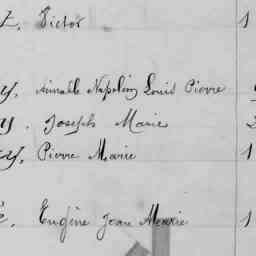 t. Victor 1
y. Aimable Napoléon Louis Pierre
y. Joseph Marie 2
y. Pierre Marie 1
é. Eugène Jean Marie 1